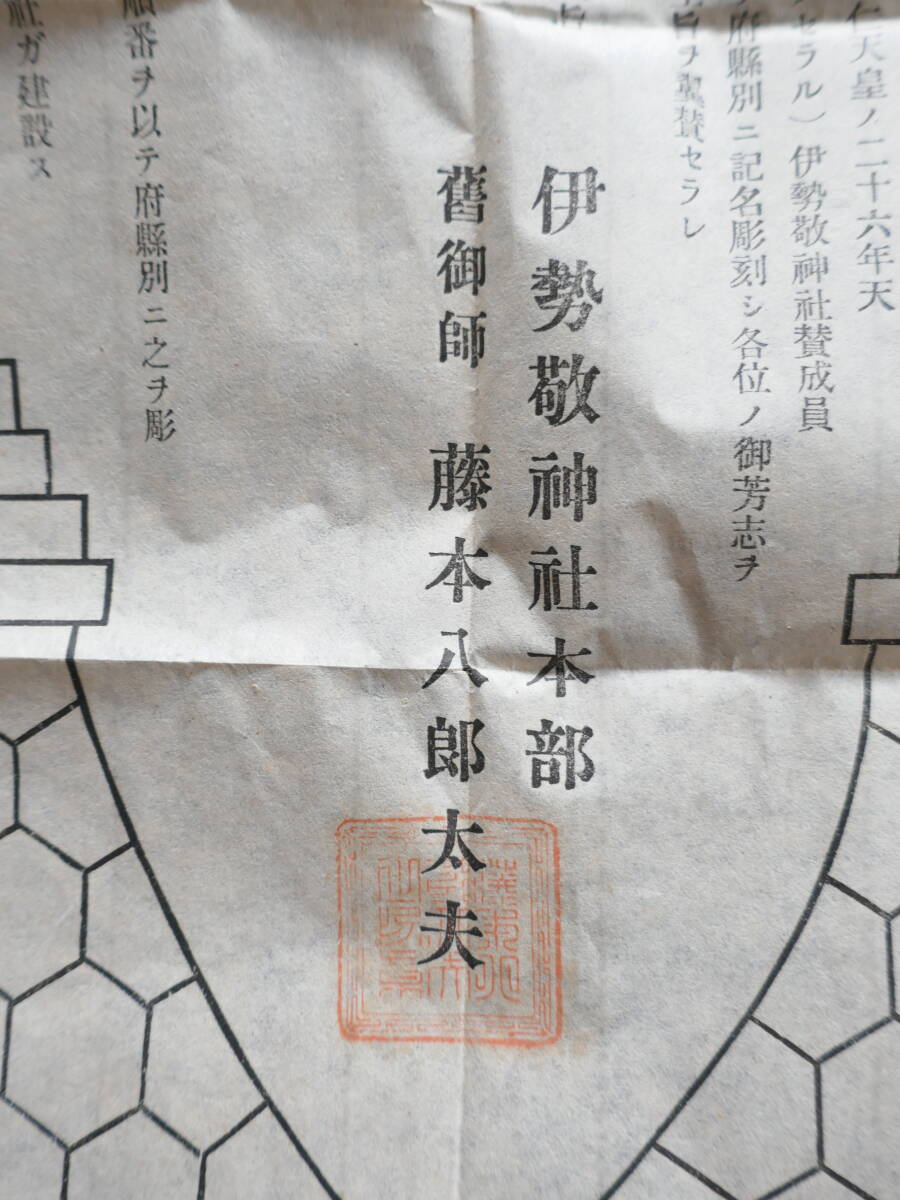 仁天皇ノ二十六年天
セラル）伊勢敬神社賛成員
府縣別ニ記名彫刻シ各位ノ御芳志ヲ
旨ヲ翼賛セラレ
伊勢敬神社本部
舊御師 藤本八郎太夫
順番ヲ以テ府縣別ニ之ヲ彫
社ガ建設ス